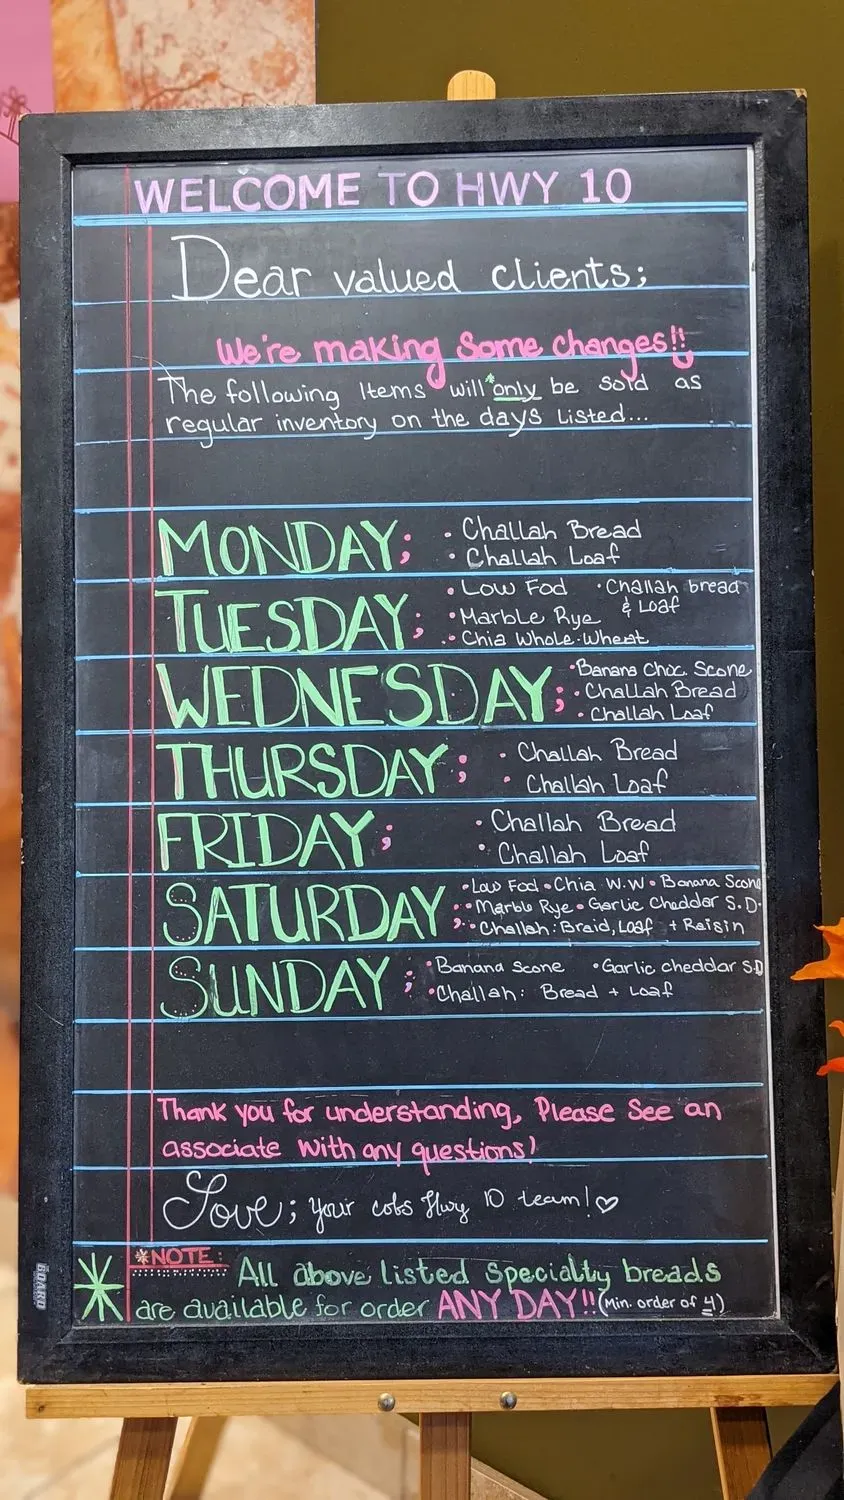 WELCOME TO HWY 10
Dear valued clients;
We're making some changes!!
The following Items will *only be sold as
regular inventory on the days Listed...
MONDAY; • Challah Bread
• Challah Loaf
TUESDAY; • Low Fod • Challah bread
& Loaf
• Marble Rye
• Chia Whole-Wheat
WEDNESDAY; • Banana Choc. Scone
• Challah Bread
• Challah Loaf
THURSDAY; • Challah Bread
• Challah Loaf
FRIDAY; • Challah Bread
• Challah Loaf
SATURDAY; • Low Fod • Chia W.W • Banana Scone
• Marble Rye • Garlic Cheddar S.D.
• Challah: Braid, Loaf + Raisin
SUNDAY; • Banana Scone • Garlic cheddar S.D
• Challah: Bread + Loaf
Thank you for understanding, Please See an
associate with any questions!
Love; your cobs Hwy 10 team! ♡
*NOTE:
All above listed specialty breads
are available for order ANY DAY!! (Min. order of 4)
BOARD